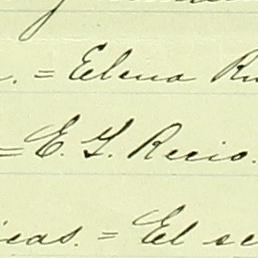 . = Elena Ru
= E. G. Recio.
icas. = El se